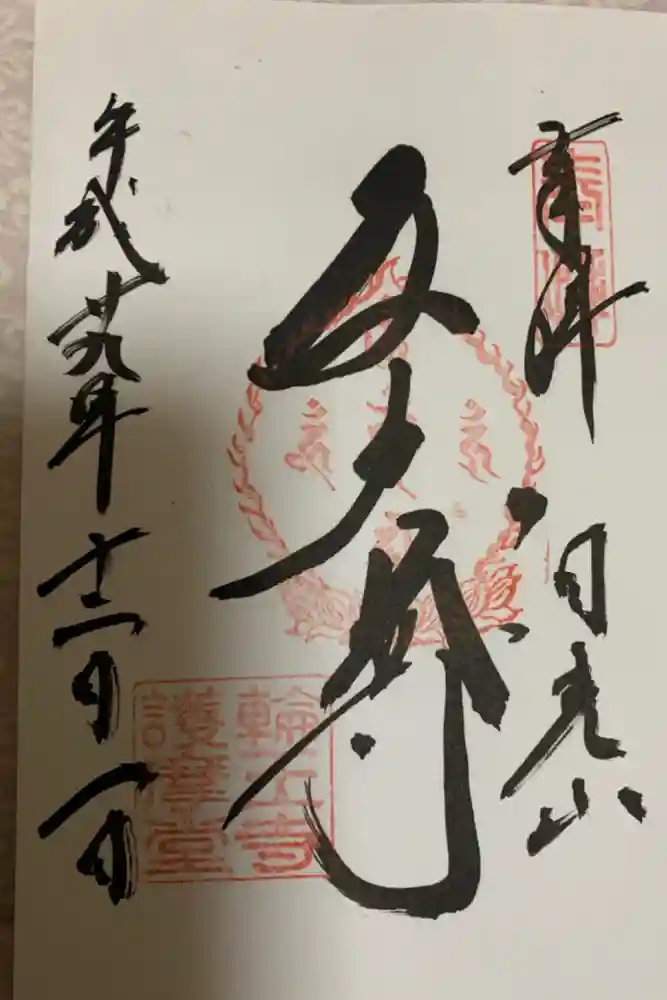 奉拝
日光山
五大尊
輪王寺
護摩堂
平成廿九年十二月一日